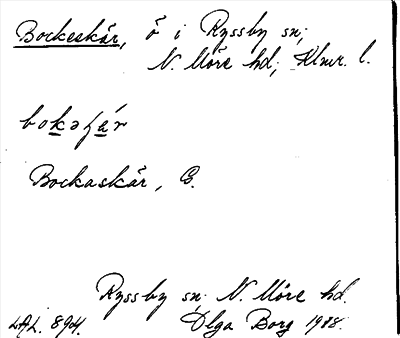 Bockeskär, ö i Ryssby sn;
N. Möre hd; Klmr. l.
bokəʃár
Bockaskär, G.
Ryssby sn; N. Möre hd.
LAL. 894. Olga Borg 1928.